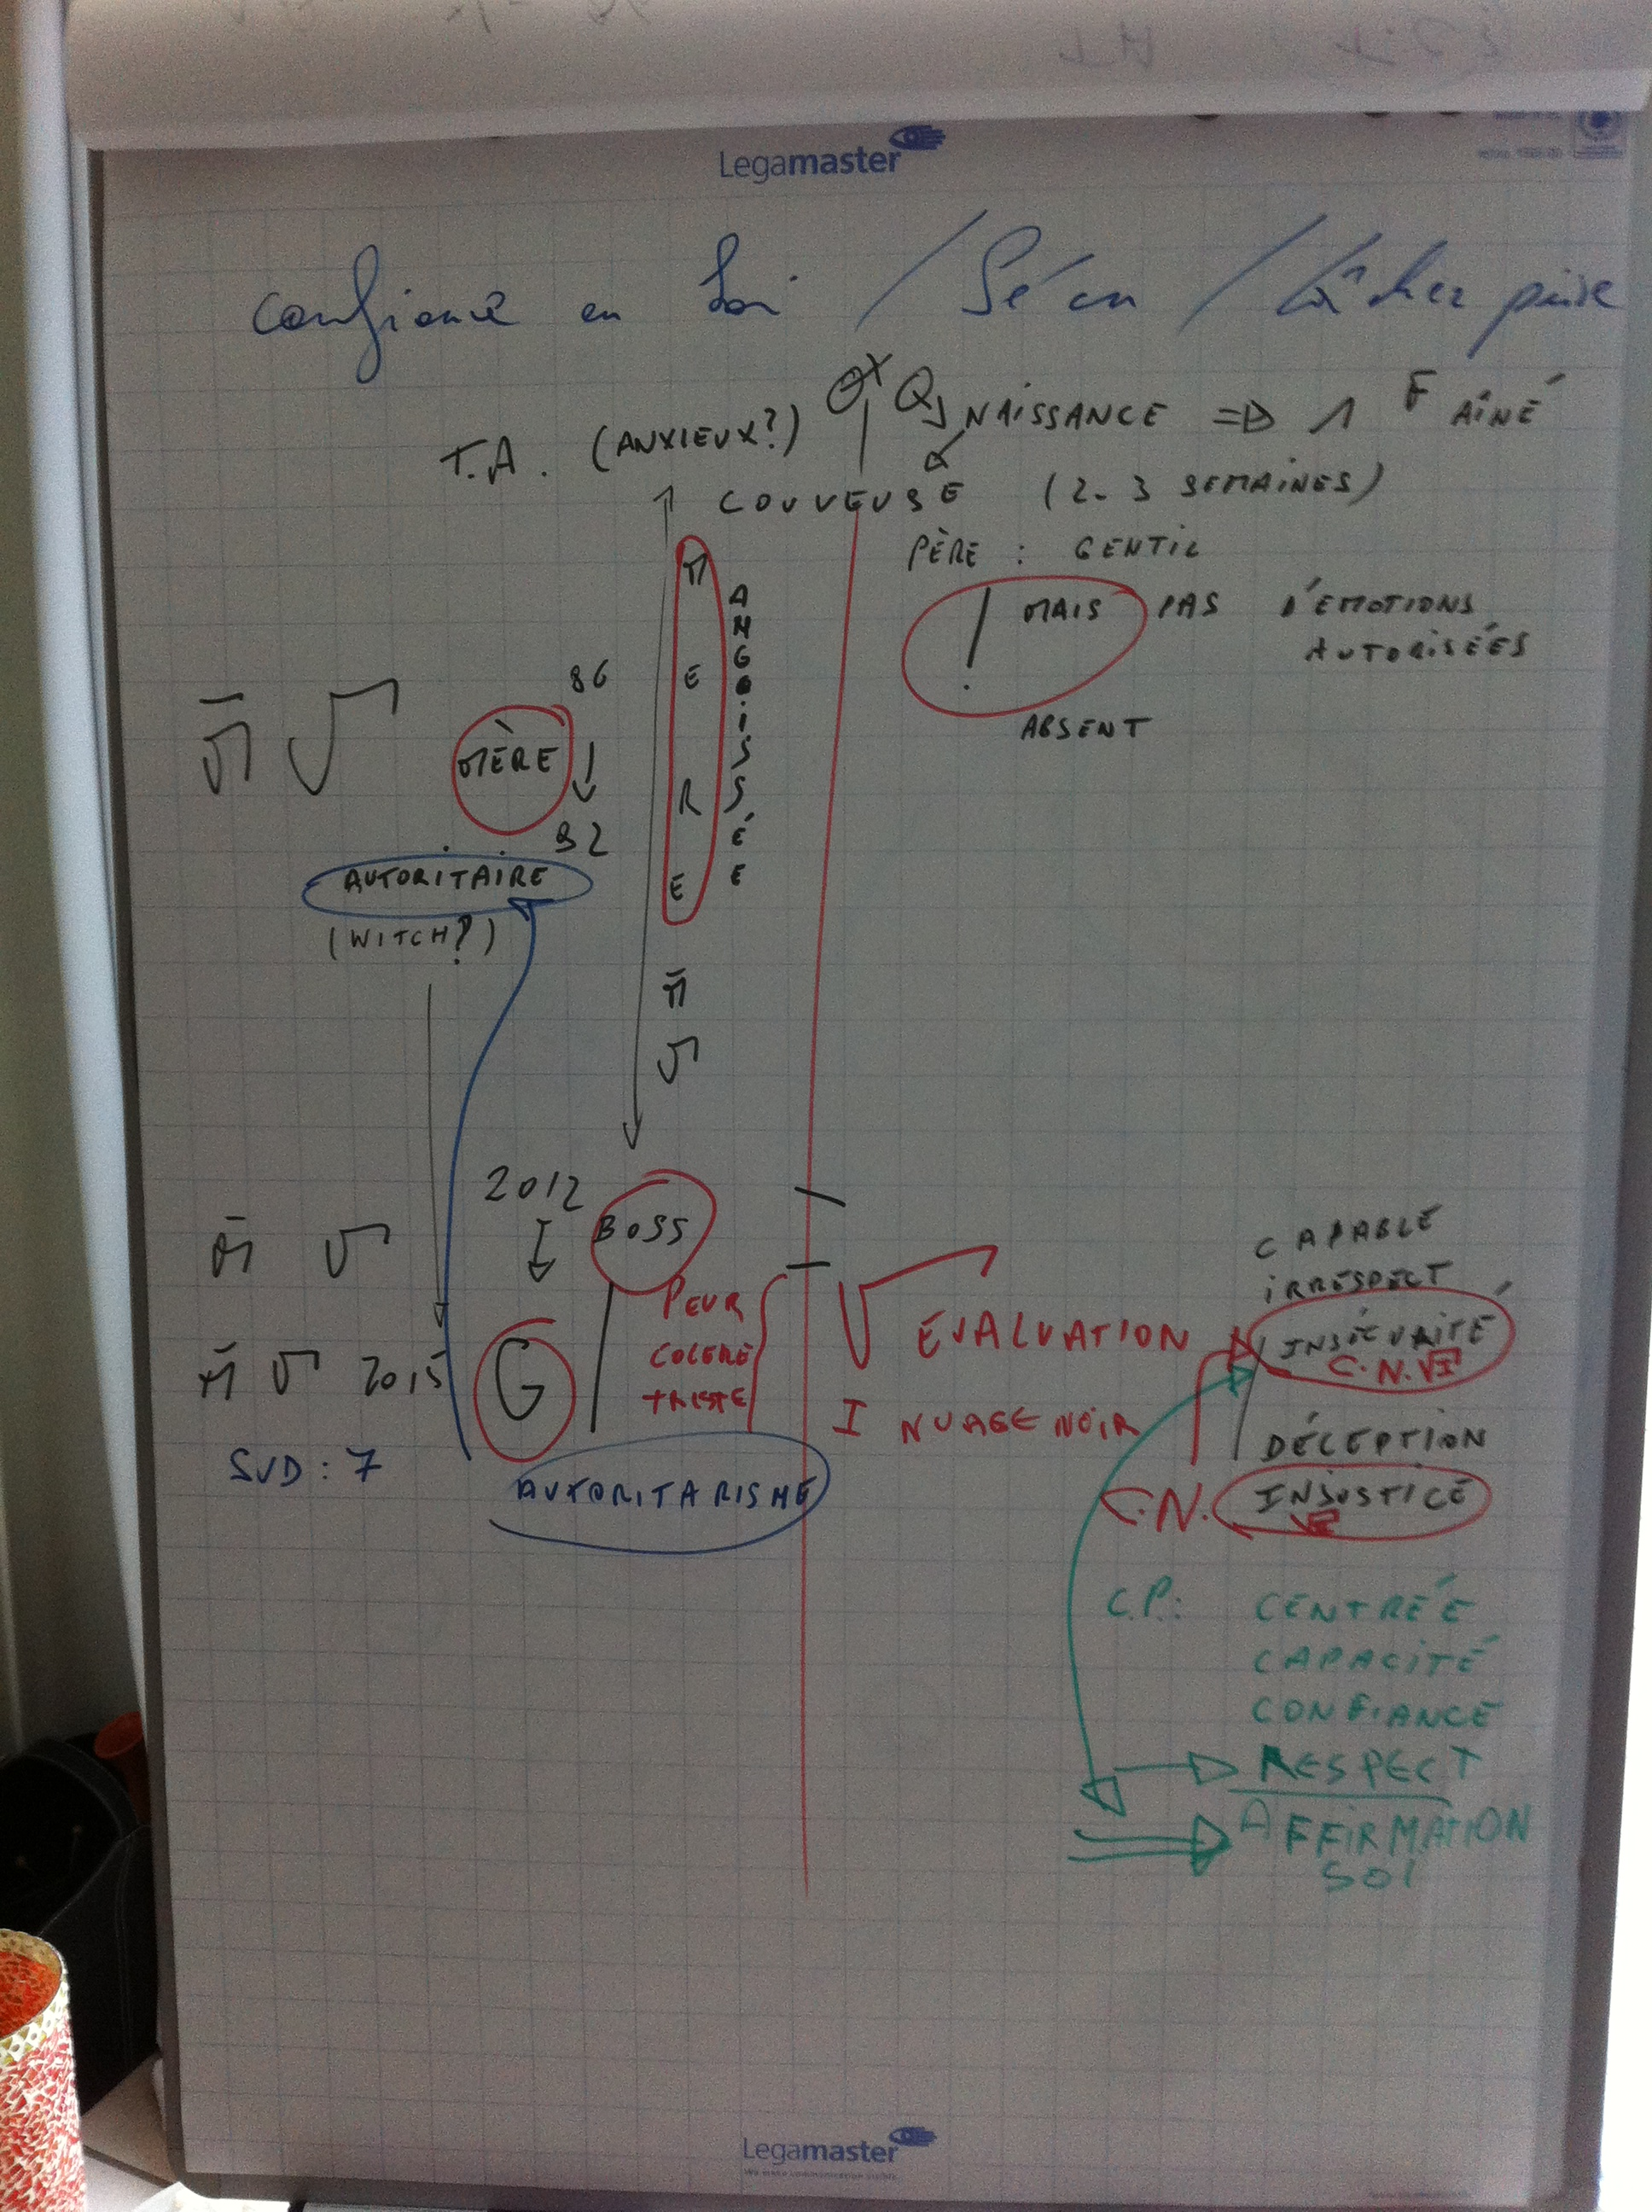 Legamaster
confiance en soi / Sécu / lâcher prise
T.A. (ANXIEUX?)
NAISSANCE => 1 F AÎNÉ
COUVEUSE (2-3 SEMAINES)
PÈRE : GENTIL
! MAIS PAS D'ÉMOTIONS
AUTORISÉES
ABSENT
MERE
ANGOISSÉE
86
MÈRE
92
AUTORITAIRE
(WITCH?)
2012
BOSS
PEUR
COLERE
TRISTE
2015
G
SUD : 7
AUTORITARISME
V EVALUATION
I NUAGE NOIR
CAPABLE
IRRESPECT
INSÉCURITÉ
C.N. VI
DÉCEPTION
C.N. INJUSTICE
C.P.: CENTRÉE
CAPACITÉ
CONFIANCE
RESPECT
AFFIRMATION
SOI
Legamaster